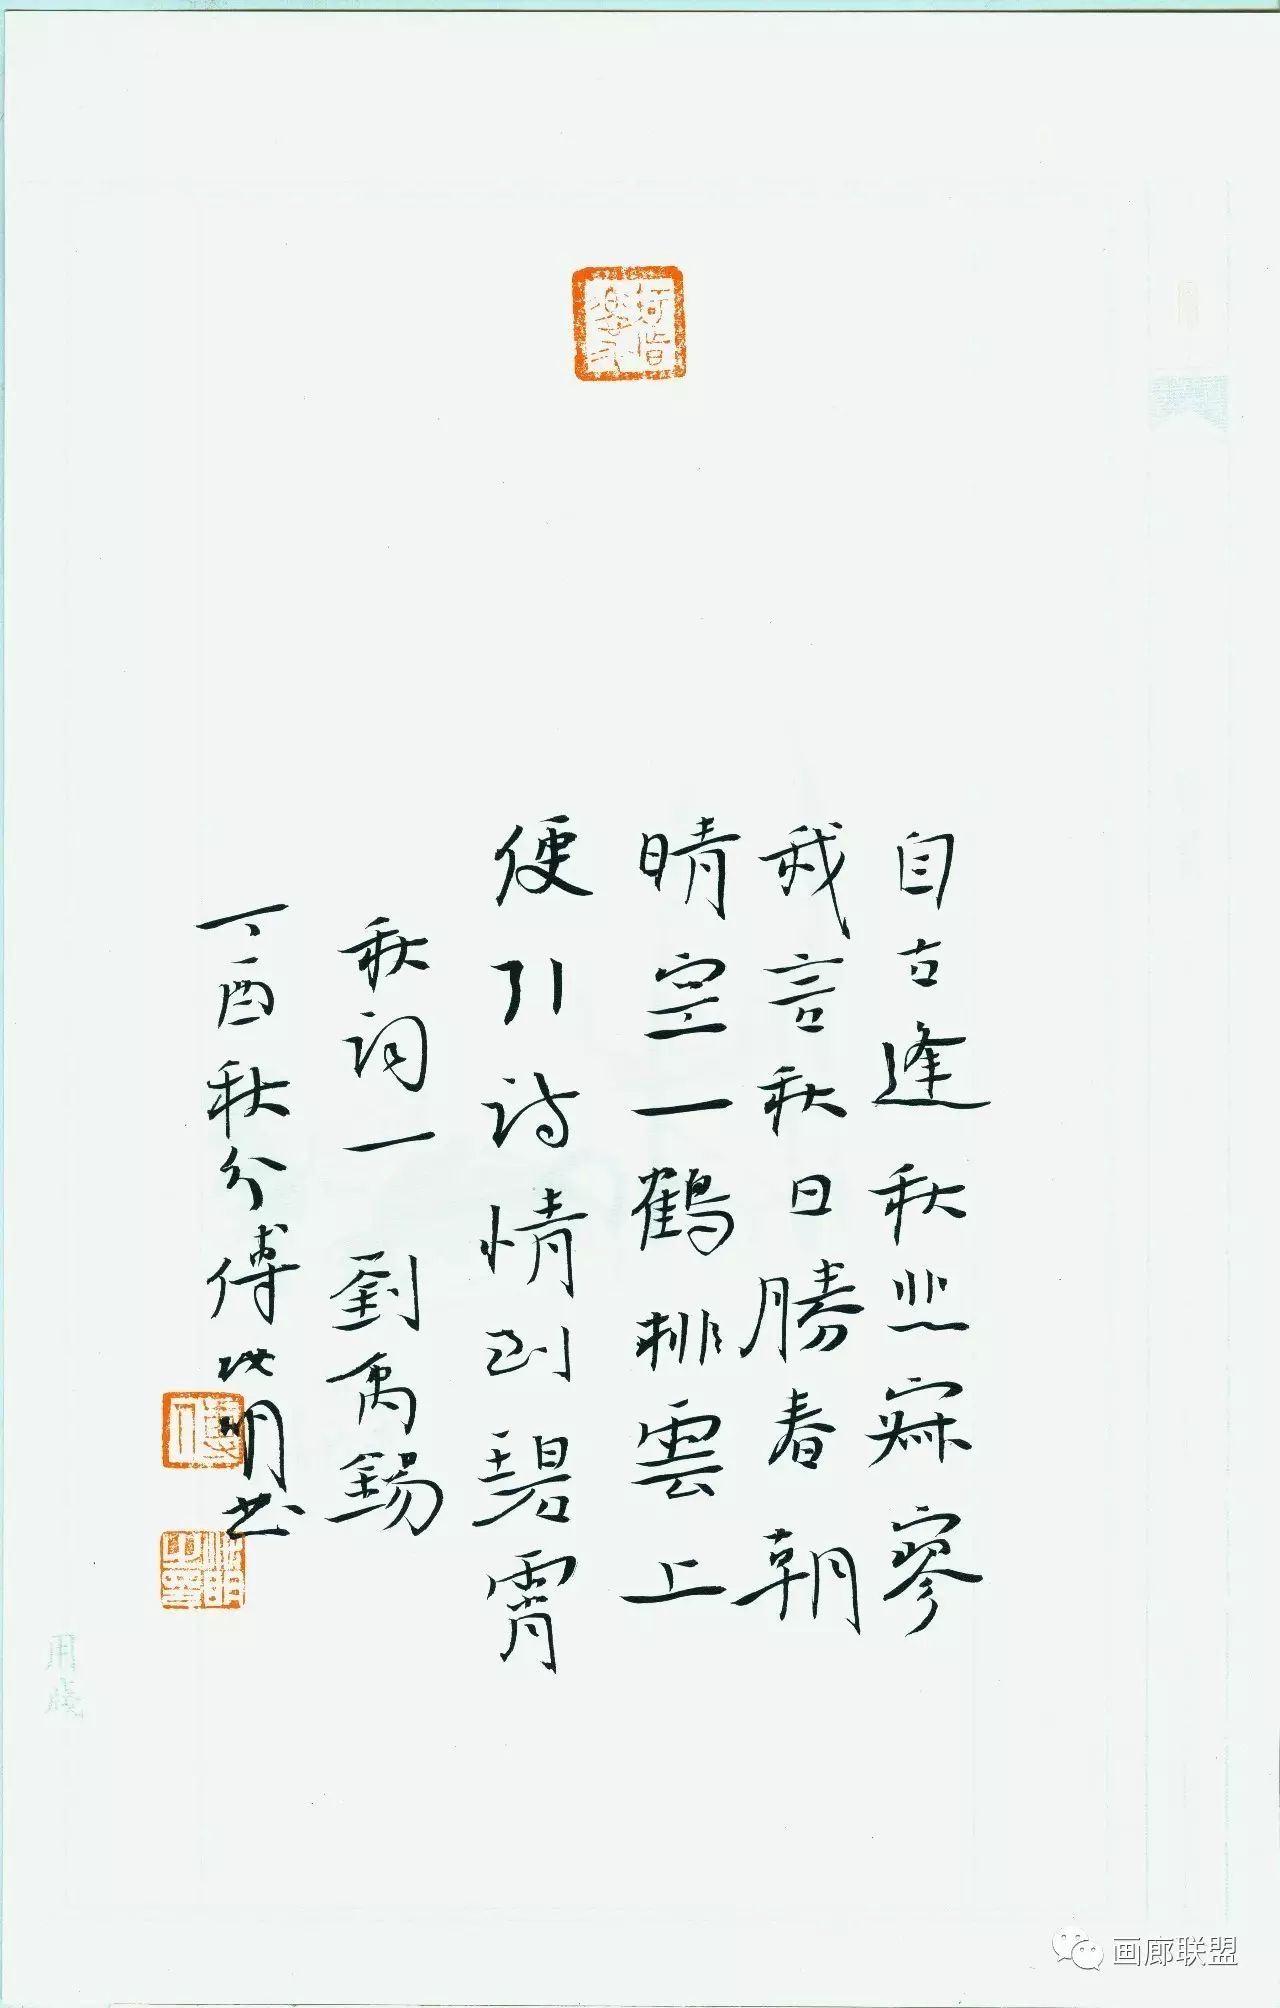 自古逢秋悲寂寥
我言秋日勝春朝
晴空一鶴排雲上
便引詩情到碧霄
秋词一 劉禹錫
丁酉秋分傅明书
用牋
画廊联盟